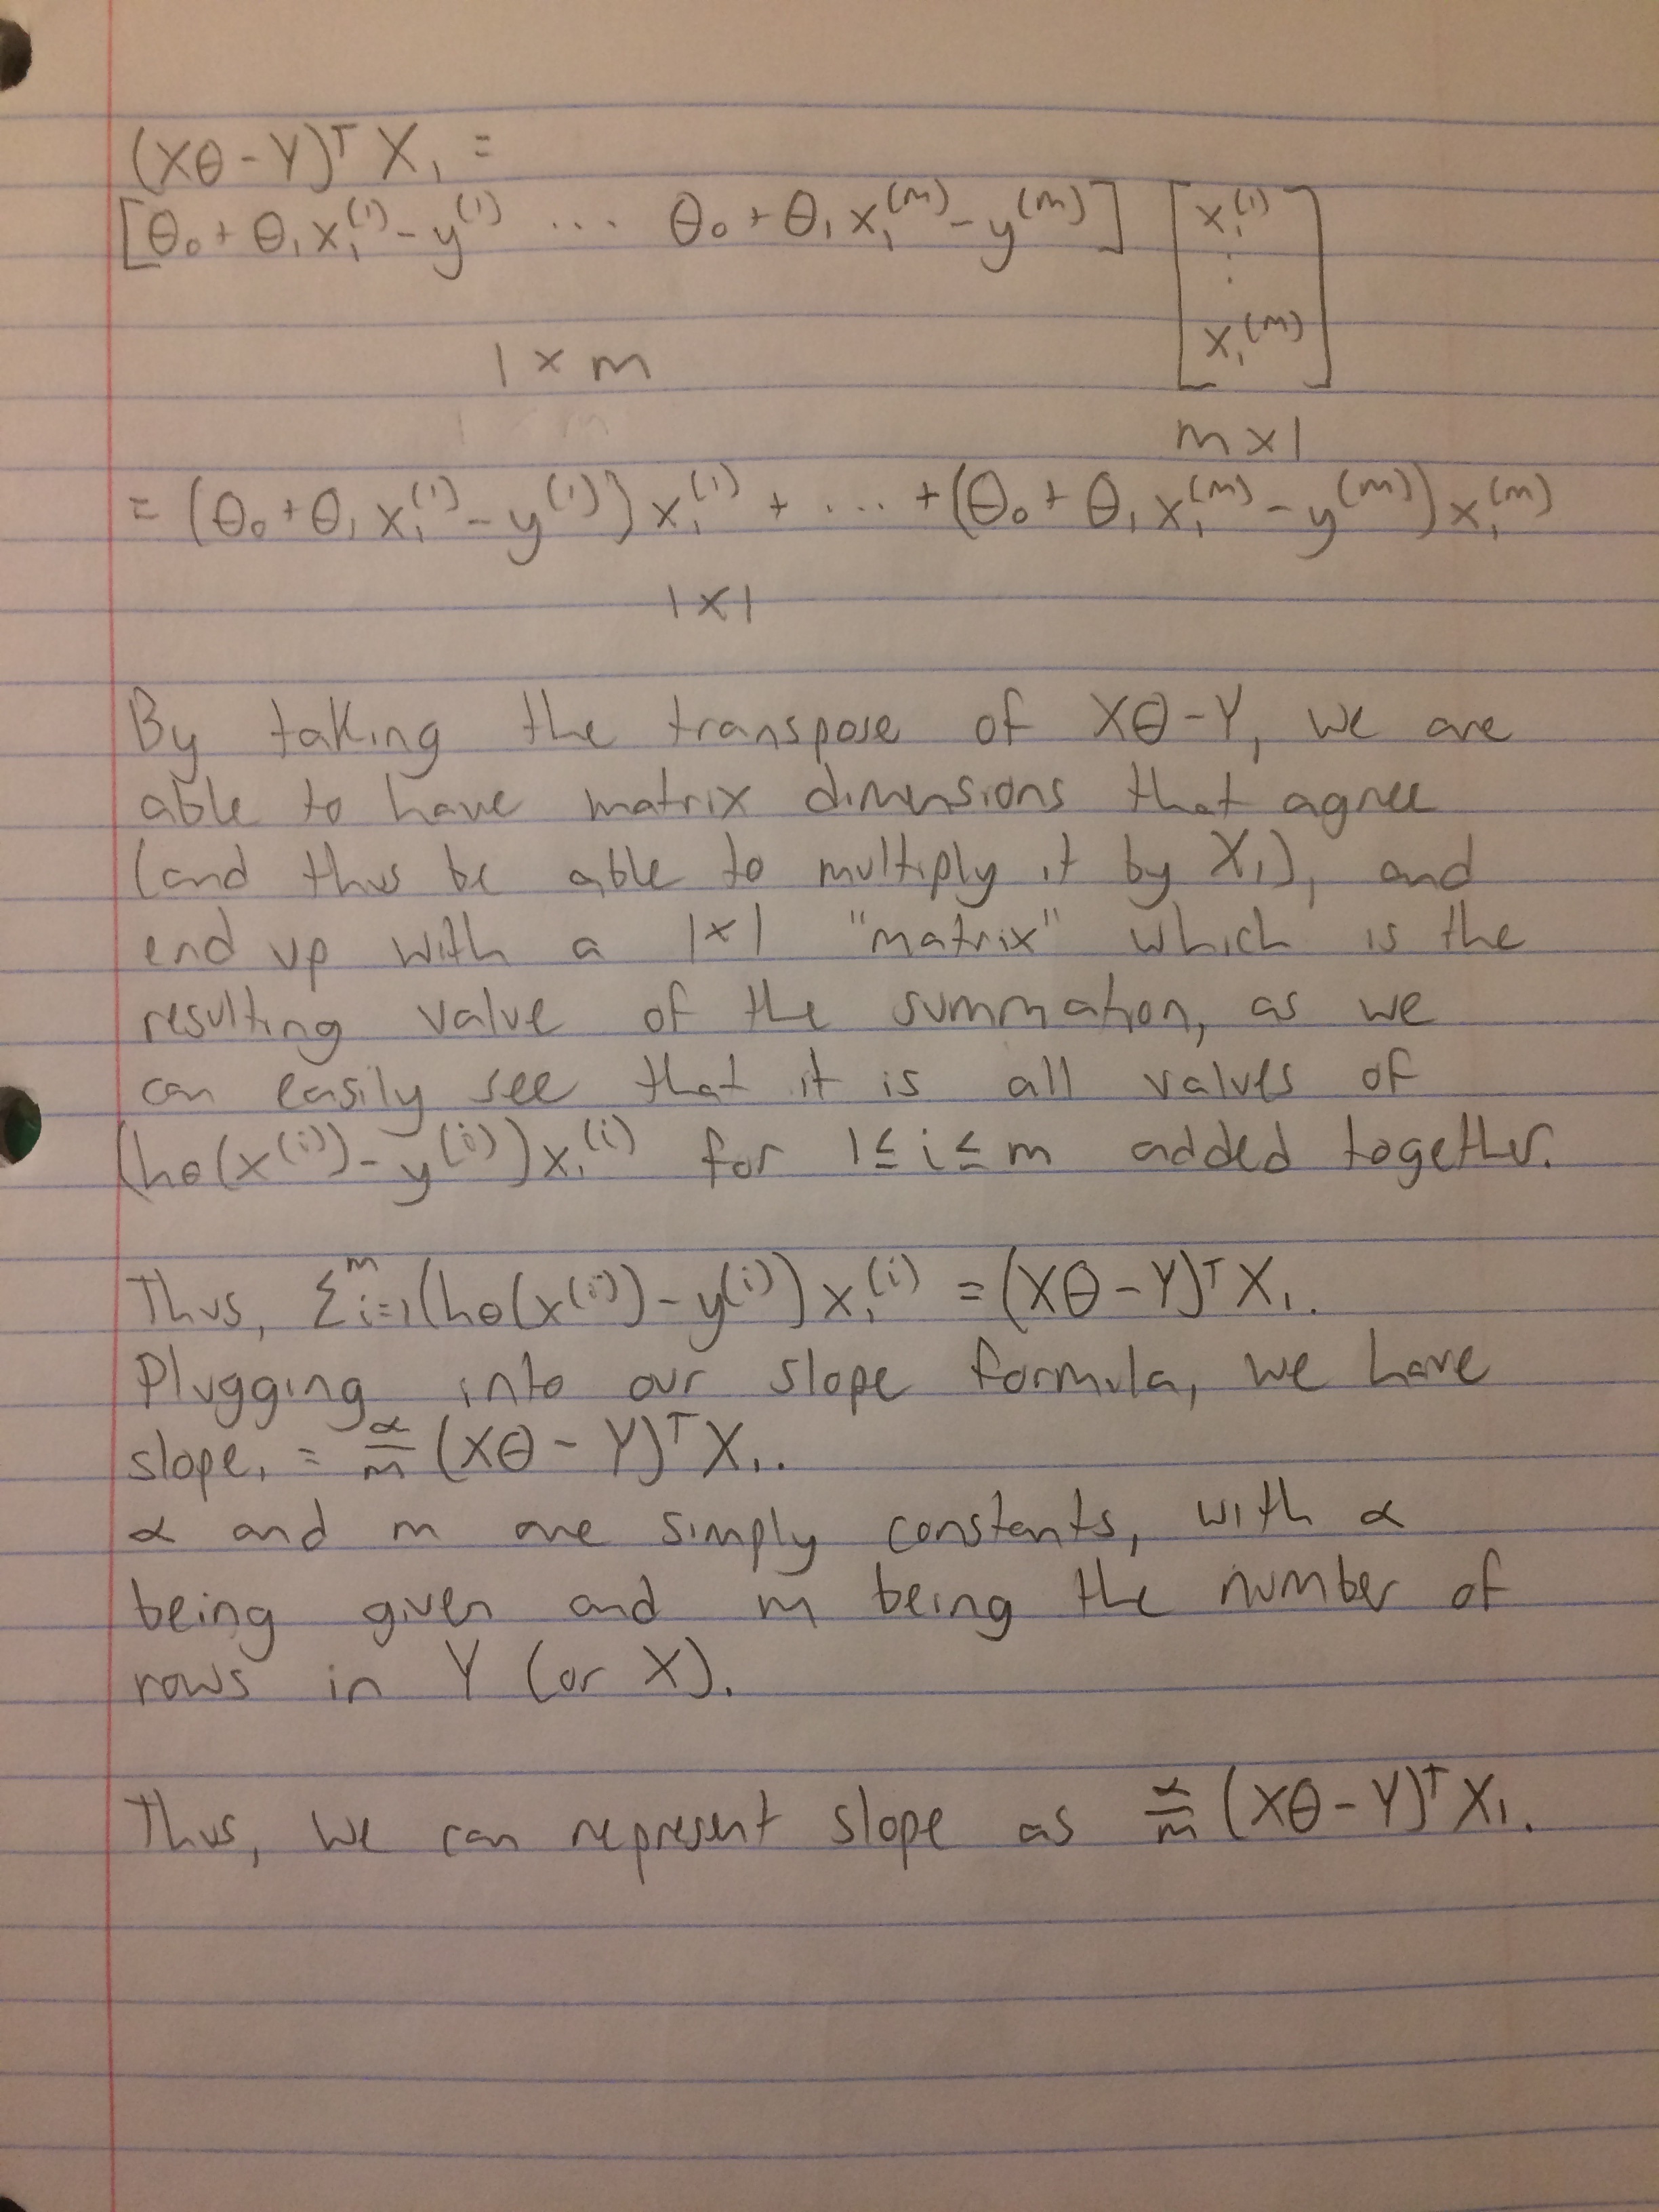 (Xθ - Y)ᵀ X₁ =
[θ₀ + θ₁x₁⁽¹⁾ - y⁽¹⁾ ... θ₀ + θ₁x₁⁽ᵐ⁾ - y⁽ᵐ⁾] [x₁⁽¹⁾ ⋮ x₁⁽ᵐ⁾]
1 x m m x 1
= (θ₀ + θ₁x₁⁽¹⁾ - y⁽¹⁾) x₁⁽¹⁾ + ... + (θ₀ + θ₁x₁⁽ᵐ⁾ - y⁽ᵐ⁾) x₁⁽ᵐ⁾
1 x 1
By taking the transpose of Xθ - Y, we are
able to have matrix dimensions that agree
(and thus be able to multiply it by X₁), and
end up with a 1x1 "matrix" which is the
resulting value of the summation, as we
can easily see that it is all values of
(hθ(x⁽ⁱ⁾) - y⁽ⁱ⁾) x₁⁽ⁱ⁾ for 1 ≤ i ≤ m added together.
Thus, Σᵐi=1 (hθ(x⁽ⁱ⁾) - y⁽ⁱ⁾) x₁⁽ⁱ⁾ = (Xθ - Y)ᵀ X₁.
Plugging into our slope formula, we have
slope₁ = α/m (Xθ - Y)ᵀ X₁.
α and m are simply constants, with α
being given and m being the number of
rows in Y (or X).
Thus, we can represent slope as α/m (Xθ - Y)ᵀ X₁.